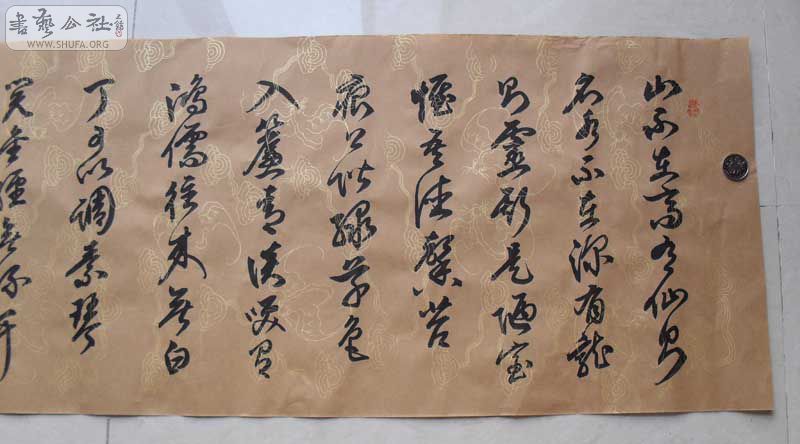 書藝公社
WWW.SHUFA.ORG
山不在高有仙則
名水不在深有龍
則靈斯是陋室
惟吾德馨苔
痕上階綠草色
入簾青談笑有
鴻儒往來無白
丁可以調素琴
閱金經無絲竹